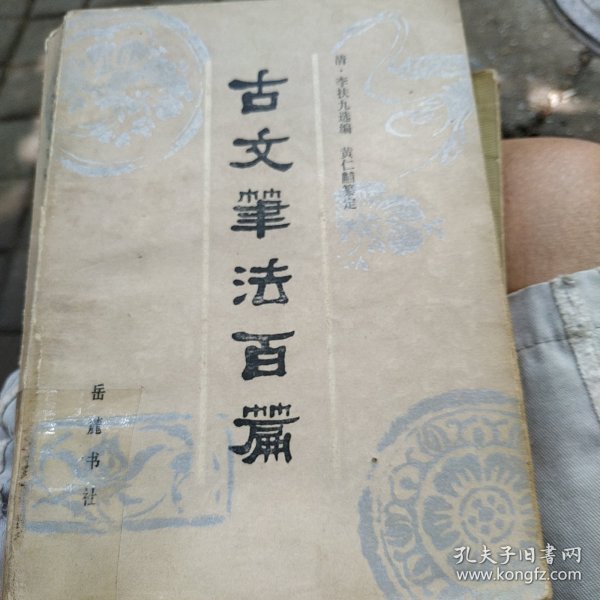 清·李扶九选编 黄仁黼纂定
古文筆法百篇
岳麓书社
孔夫子旧书网
www.kongfz.com